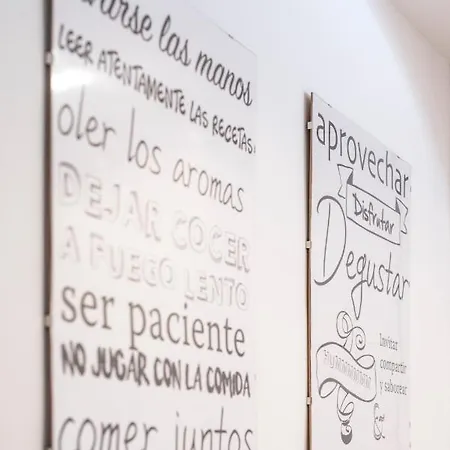 las manos
LEER ATENTAMENTE LAS RECETAS
oler los aromas
DEJAR COCER
A FUEGO LENTO
ser paciente
NO JUGAR CON LA COMIDA
comer juntos
aprovechar
Disfrutar
Degustar
Invitar
compartir
y saborear